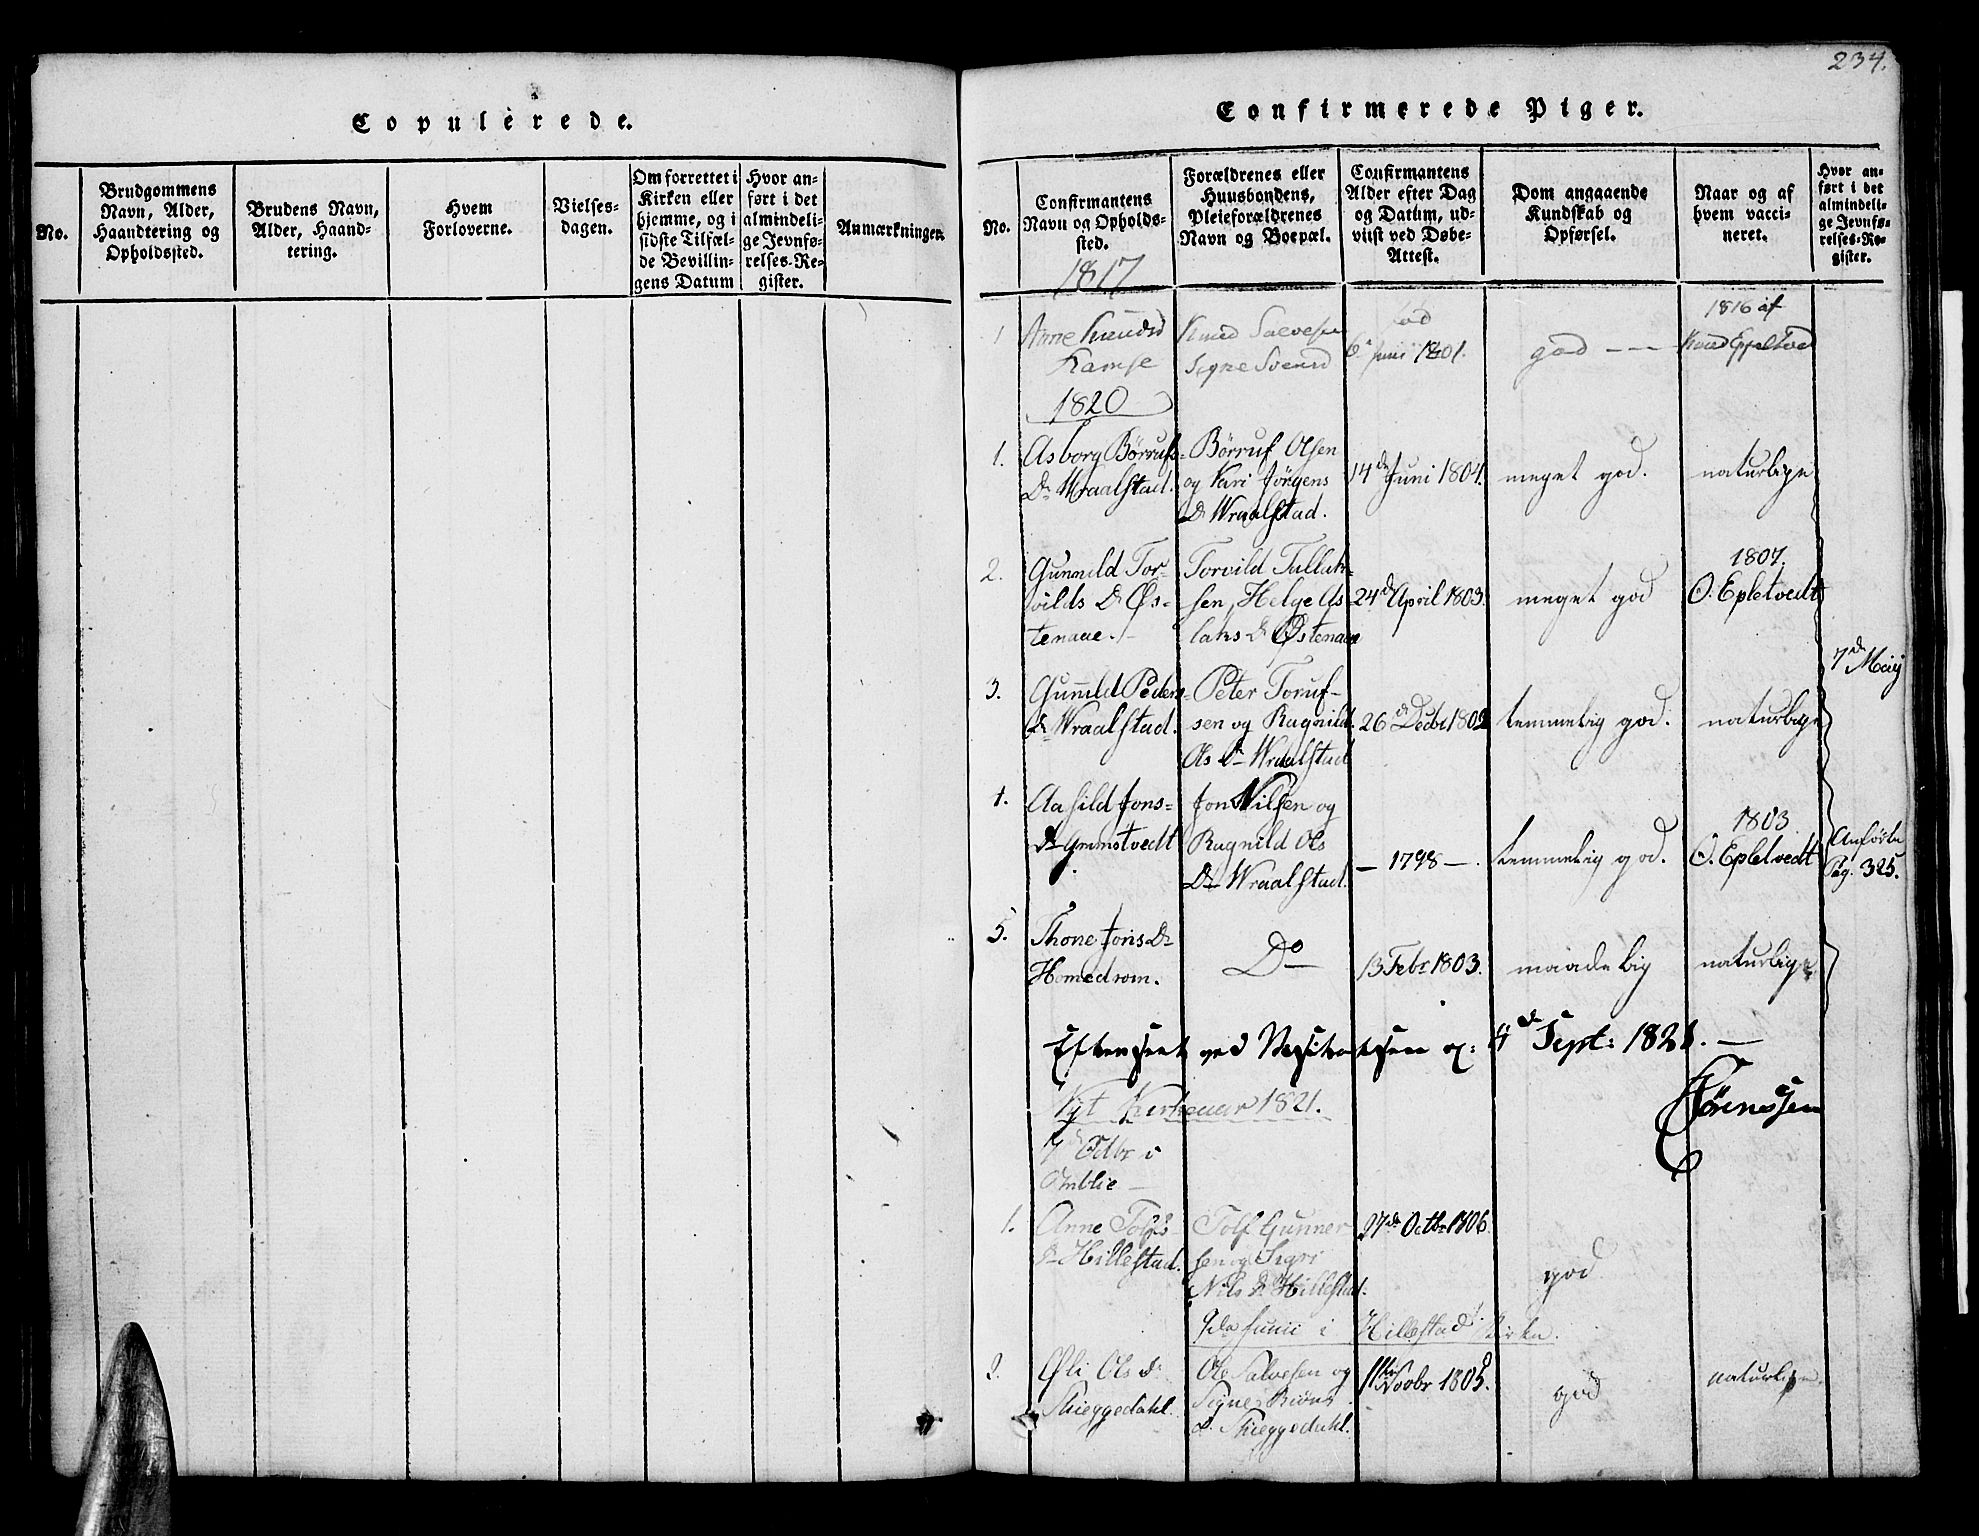 Copulerede.
No.
Brudgommens
Navn, Alder,
Haandtering og
Opholdssted.
Brudens Navn,
Alder, Haand-
tering.
Hvem
Forloverne.
Vielses-
dagen.
Om forrettet i
Kirken eller
hjemme, og i
sidste Tilfæl-
de Bevillin-
gens Datum
Hvor an-
ført i det
almindeli-
ge Jevnfø-
relses-Re-
gister.
Anmærkninger.
234.
Confirmerede Piger.
No.
Confirmantens
Navn og Opholds-
sted.
1817
Forældrenes eller
Huusbondens,
Pleieforældrenes
Navn og Boepæl.
Confirmantens
Alder efter Dag
og Datum, ud-
viist ved Døbe-
Attest.
Dom angaaende
Kundskab og
Opførsel.
Naar og af
hvem vacci-
neret.
Hvor an-
ført i det
almindeli-
ge Jevnfø-
relses-Re-
gister.
1
Anne Knudsd
Ramse
Knud Salvesen
Signe Svensd
fød
6 Juni 1801.
god
1816 af
Knud Epeltved
1820
1.
Asborg Børrufs-
Dr Wraalstad.
Børruf Olsen
og Kari Jørgens
Dr Wraalstad.
14de Juni 1804.
meget god.
naturlige
2.
Gunneld Tor-
vilds Dr Øs-
tenaae.
Torvild Tulluf-
sen, Helge As-
laks Dr Østenaae
24de April 1803.
meget god
1807.
O. Epletvedt
7de Maij
3.
Gunneld Peders-
Dr Wraalstad.
Peter Toruf-
sen og Ragnild
Ols Dr Wraalstad
26de Decbr 1802
temmelig god.
naturlige
4.
Aasild Jons-
Dr Grimstvedt
Jon Nilsen og
Ragnild Ols
Dr Wraalstad.
- 1798 -
temmelig god.
1803
O. Epletvedt
Anførte
Pag. 325.
5.
Thone Jons Dr
Homedrom.
Do
13 Febr 1803.
maadelig
naturlige.
Efterseet ved Visitatsen d: 4de Sept: 1821.
Sørenssen
Nyt Kirkeaar 1821.
7de Octbr i
Aamlie
1.
Anne Tolfs
Dr Hillestad.
Tolf Gunner
sen og Sigri
Nils Dr Hillestad.
27de Octbr 1806.
god
9de Junii i Hillestad Kirke.
2.
Ols Dr
Skieggedahl.
Ole Salvesen og
Signe Biøns
Dr Skieggedahl.
11te Novbr 1805.
god
naturlige.